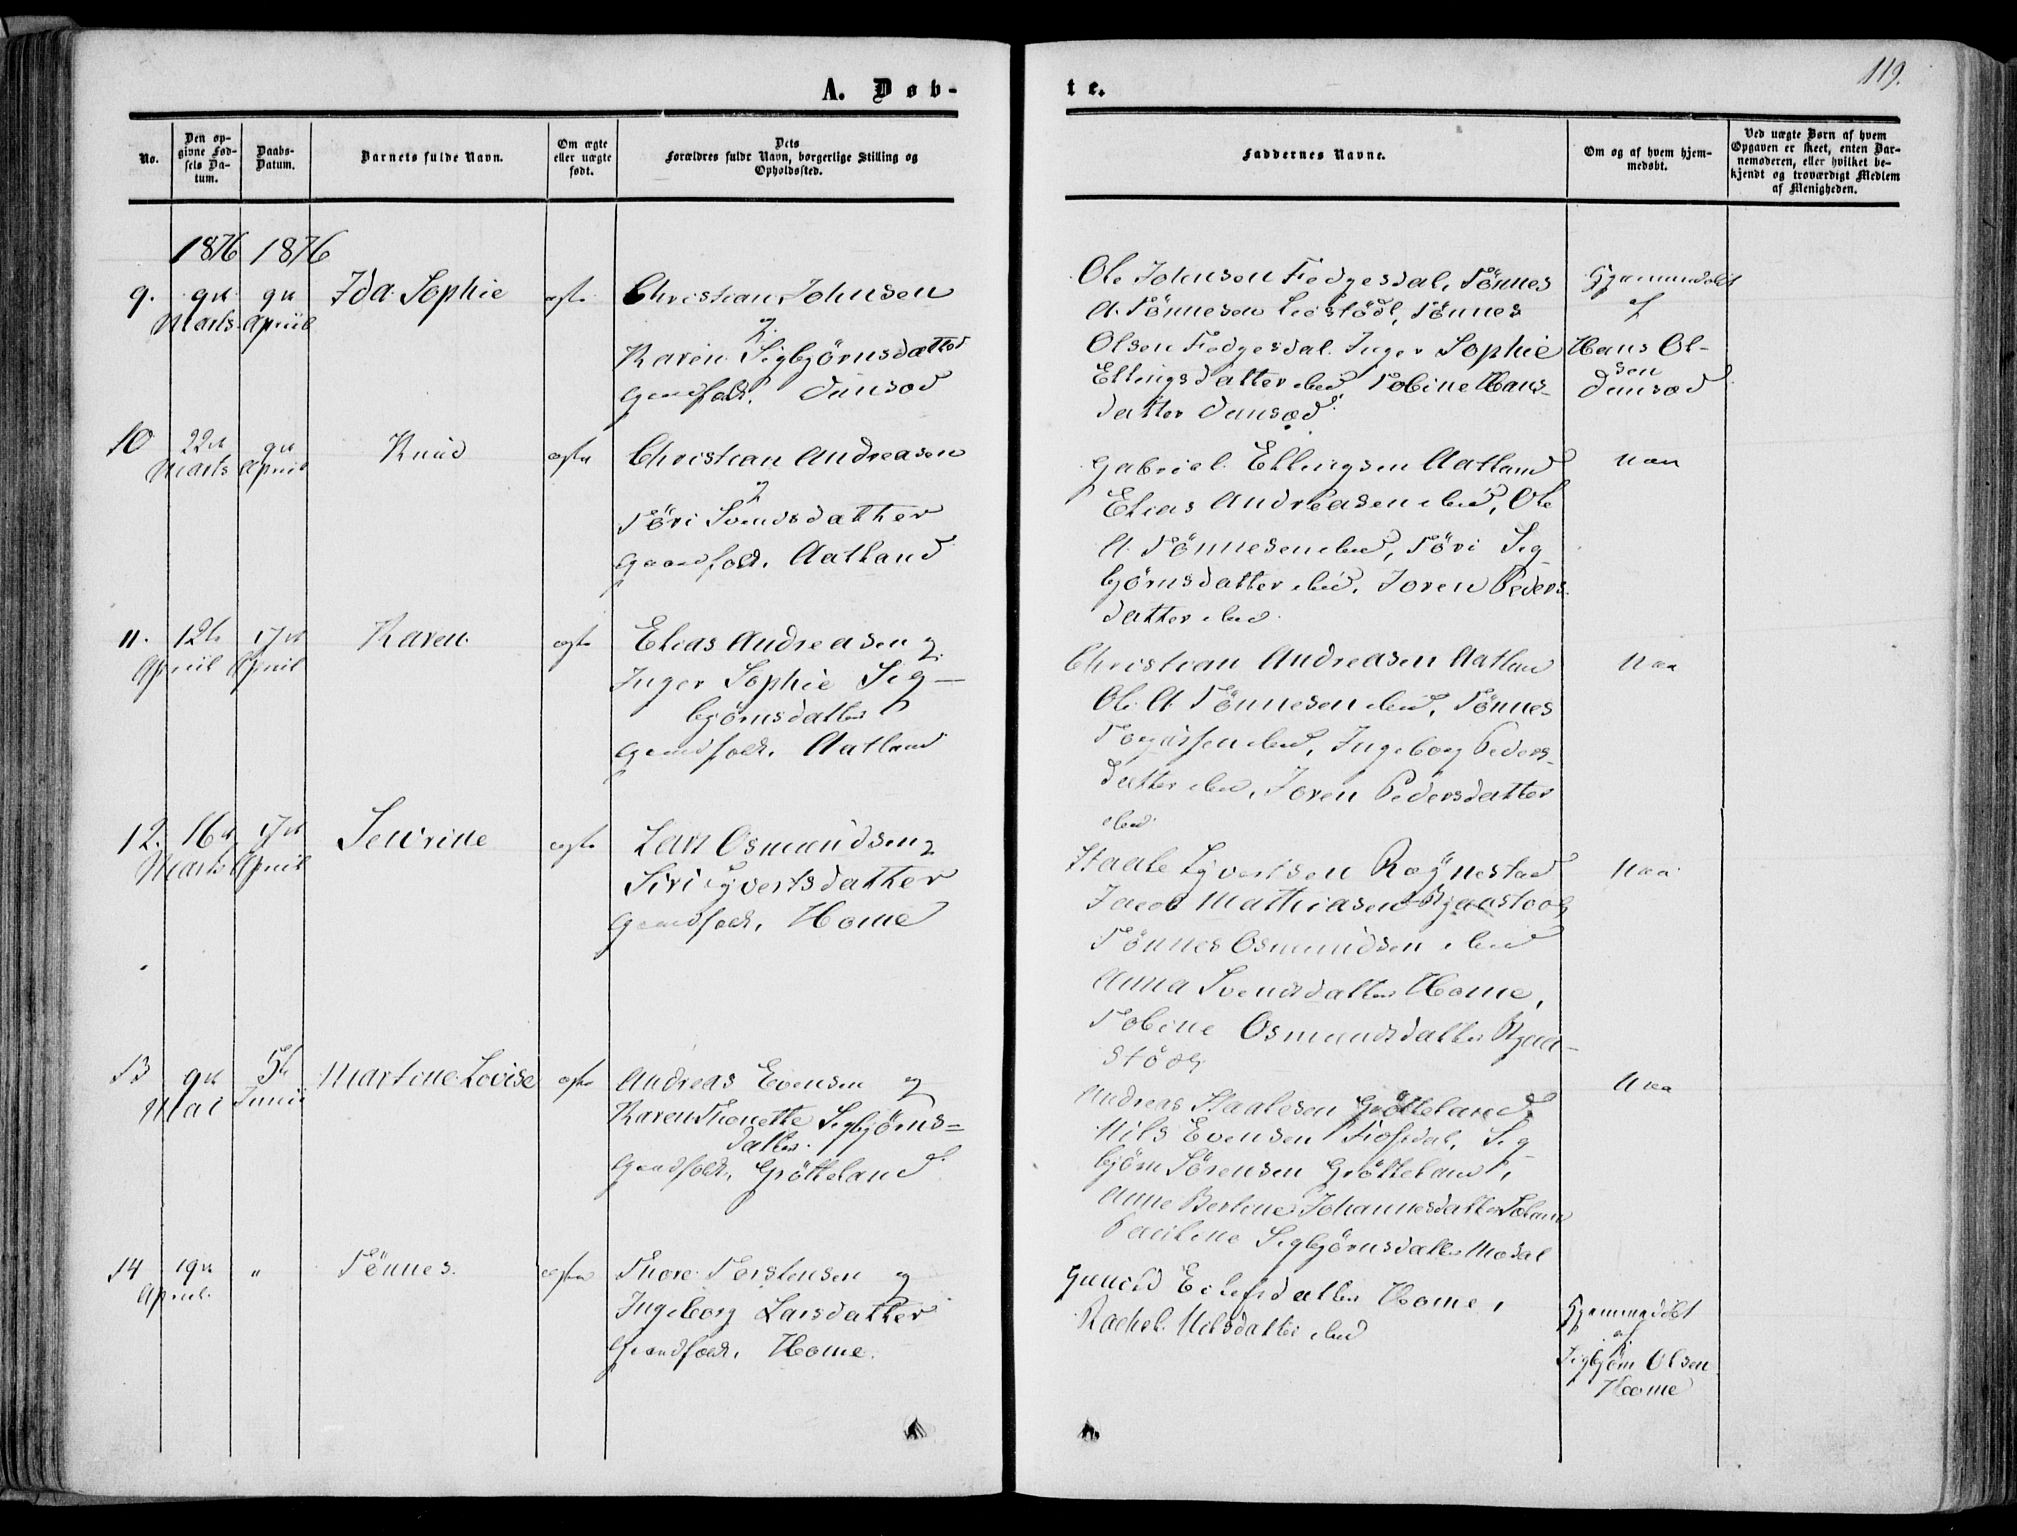 A. Døb-
te.
119.
No.
Den op-
givne Fød-
sels Da-
tum.
Daabs-
Datum.
Barnets fulde Navn.
Om ægte
eller uægte
født.
Dets
Forældres fulde Navn, borgerlige Stilling og
Opholdssted.
Faddernes Navne.
Om og af hvem hjem-
medøbt.
Ved uægte Børn af hvem
Opgaven er skeet, enten Bar-
nemoderen, eller hvilket be-
kjendt og troværdigt Medlem
af Menigheden.
1876 1876
9. 9de Marts 9de April Ida Sophie ægte Christian Johnsen
og
Karen Sigbjörnsdatter
Gaardfolk.
Ole Johnsen Fedgesdal, Tönnes
A. Tönnesen Tönnes
Olsen Fedgesdal. Inger Sophie
Ellingsdatter ibid Tobine Hans-
datter
Hjemmedöbt
af
Hans Ol-
sen
10 22de Marts 9de April Knud ægte Christian Andreasen
og
Töri Svendsdatter
Gaardfolk. Aatland
Gabriel Ellingsen Aatland
Elias Andreasen ibid, Ole
A. Tönnesen ibid, Töri Sig-
björnsdatter ibid, Joren Peders-
datter ibid.
Naa
11. 12te April 17de April Karen ægte Elias Andreasen og
Inger Sophie Sig-
björnsdatter
Gaardfolk. Aatland
Christian Andreasen Aatland
Ole A. Tönnesen ibid, Tönnes
ibid, Ingeborg Peders-
datter ibid, Joren Pedersdatter
ibid.
Naa
12. 16de Marts 17de April Sewrine ægte Lars Osmundsen og
Siri Syvertsdatter
Gaardfolk. Home
Staale Syvertsen Röynestad
Jacob Mathiasen
Tönnes Osmundsen ibid
Anna Svendsdatter Home,
Tobine Osmundsdatter
Naa
13 9de Mai 5te Junii Martine Lovise ægte Andreas Evensen og
Karen Thonette Sigbjörns=
datter.
Gaardfolk, Grötteland
Andreas Staalesen Grötteland,
Nils Evensen Fiosdal, Sig-
björn Sörensen Grötteland,
Anne Bertine Johannesdatter
Pauline Sigbjörnsdatter Mosal
Naa
14 19de April. " Tönnes. ægte Thore Torstensen og
Ingeborg Larsdatter
Gaardfolk. Home.
Gunild Eilefsdatter Home,
Rachel Nilsdatter ibid
Hjemmedöbt
af
Sigbjörn Olsen
Home